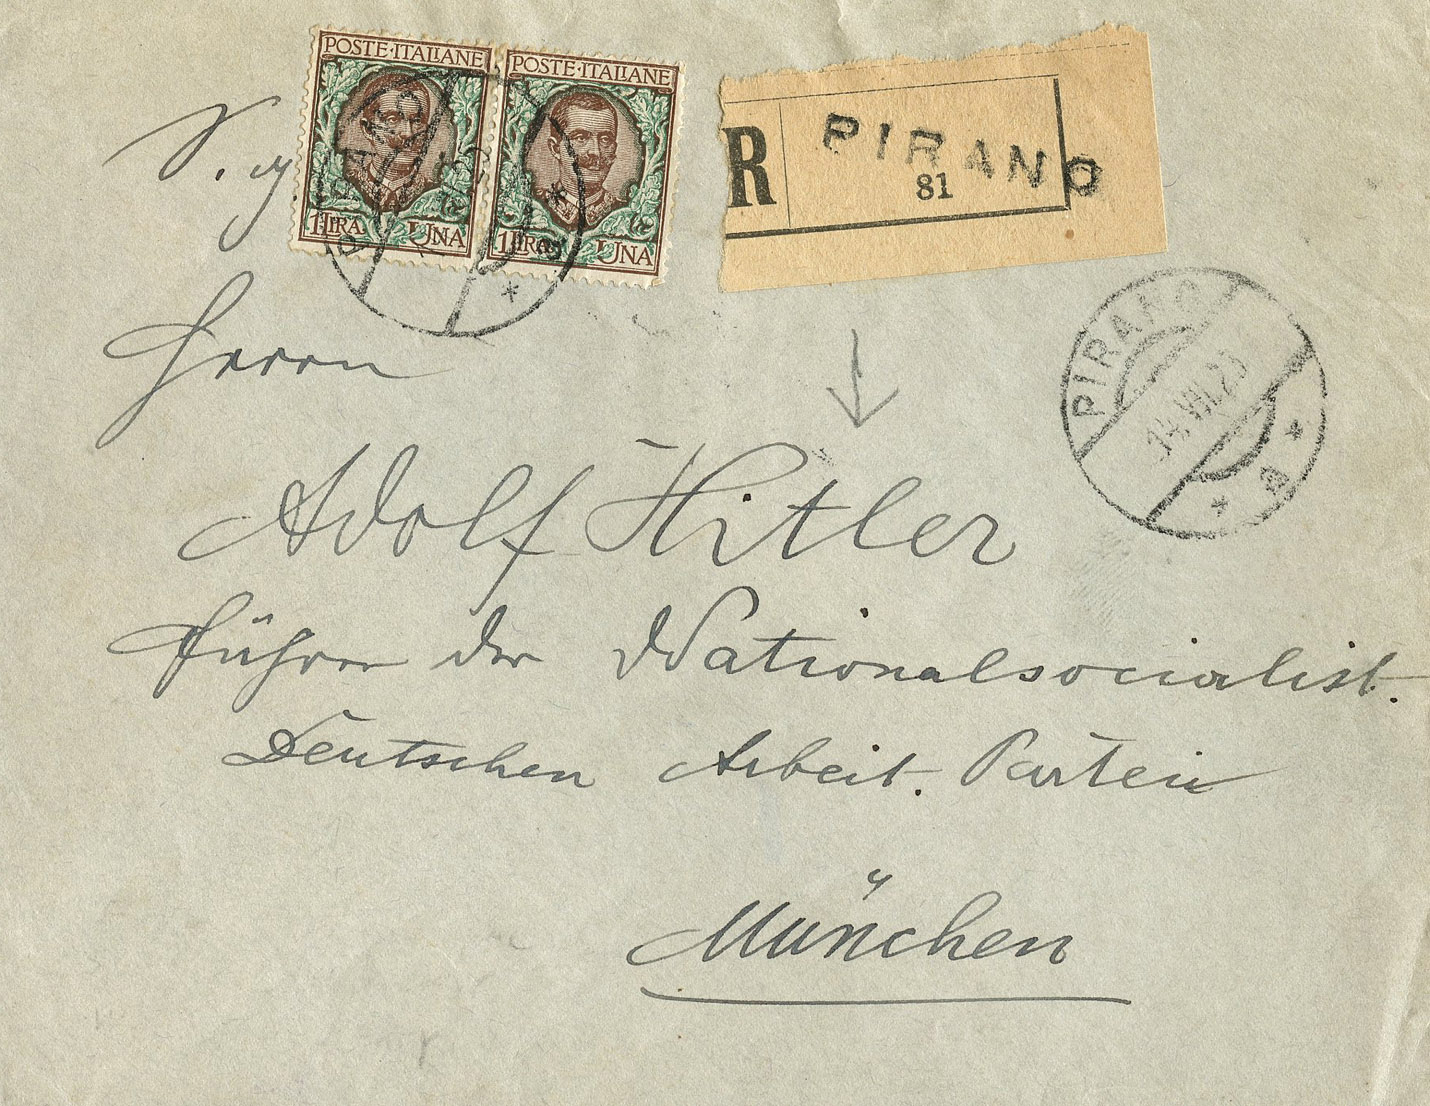 POSTE·ITALIANE POSTE·ITALIANE
1 LIRA UNA 1 LIRA UNA
PIRANO
R PIRANO
81
Herrn
PIRANO
14.VII.23
a
Adolf Hitler
Führer der Nationalsocialist.
Deutschen Arbeit. Partei
München